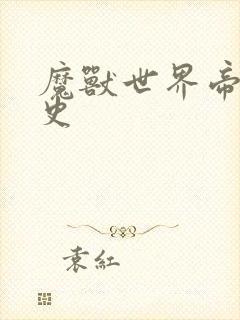 魔獸世界帝
史
袁紅